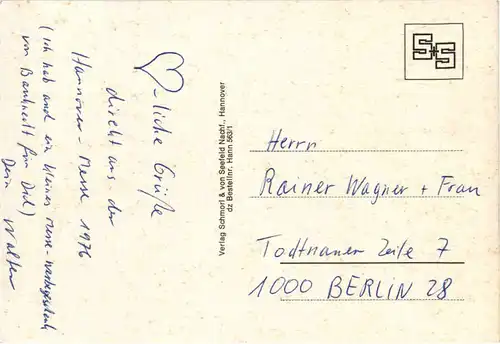 ♡-liche Grüße
direkt aus der
Hannover-Messe 1976
(Ich hab auch ein kleines Messe-
von für Dich)
Dein Walter
Verlag Schmorl & von Seefeld Nachf., Hannover
dz Bestellnr. Hann 563/1
S+S
Herrn
Rainer Wagner + Frau
Todtnauer Zeile 7
1000 BERLIN 28